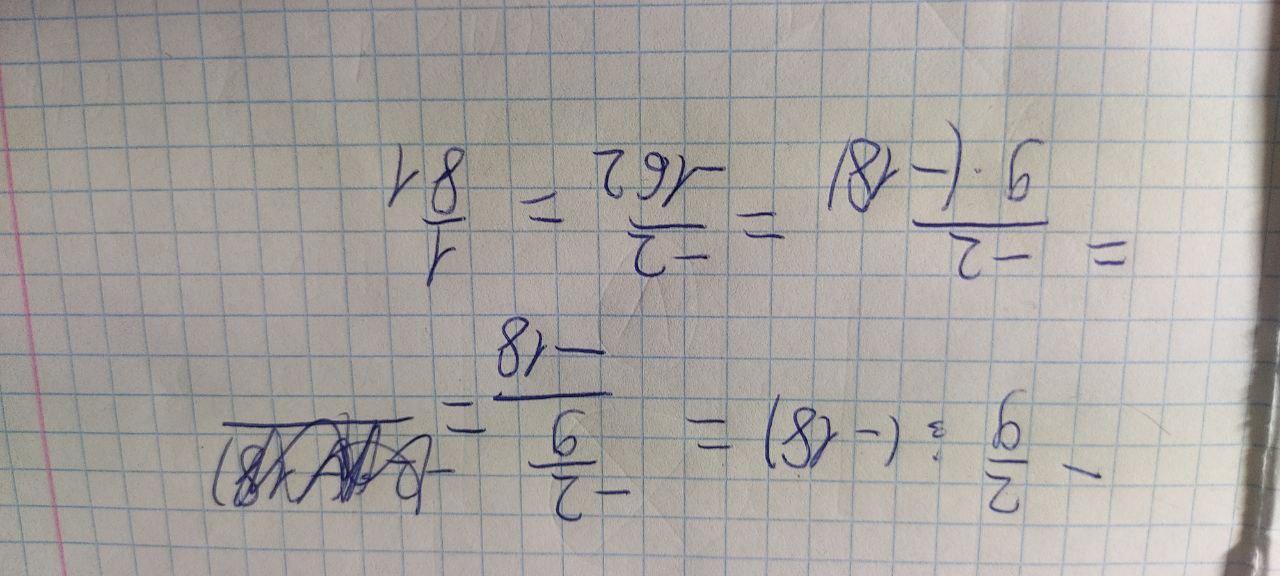 - 2/9 : (-18) = (-2/9)/(-18) =
= -2/(9·(-18)) = -2/-162 = 1/81